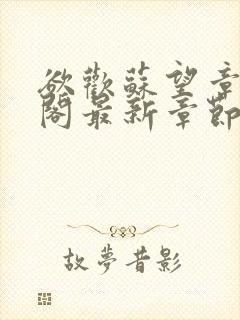 欲歡蘇望章
閣最新章節
故夢昔影